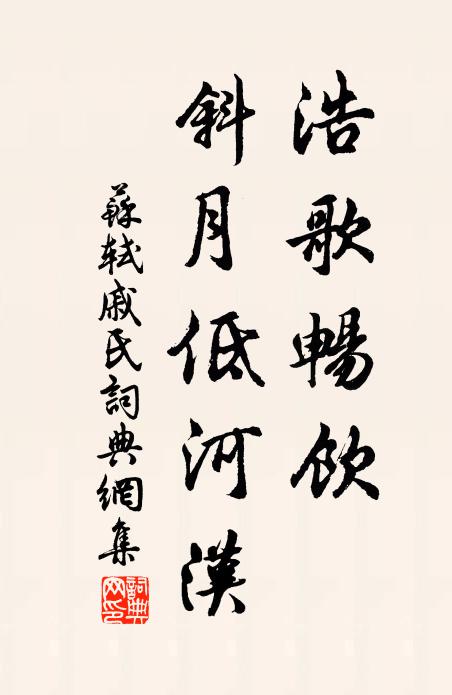 浩歌暢飲
斜月低河漢
蘇軾戚氏詞典網集
詞典網印